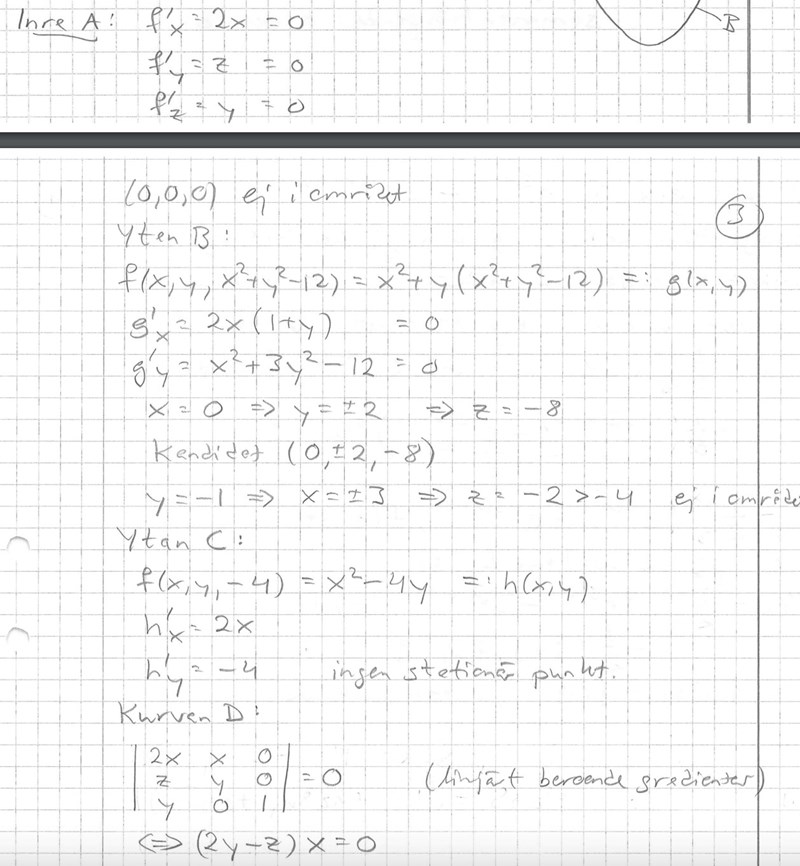 Inre A: f'x = 2x = 0
B
f'y = z = 0
f'z = y = 0
(0,0,0) ej i området
3
Ytan B:
f(x,y, x²+y²-12) = x²+y(x²+y²-12) =: g(x,y)
g'x = 2x(1+y) = 0
g'y = x²+3y²-12 = 0
x = 0 ⇒ y = ±2 ⇒ z = -8
Kandidat (0,±2,-8)
y = -1 ⇒ x = ±3 ⇒ z = -2 > -4 ej i område
Ytan C:
f(x,y,-4) = x²-4y =: h(x,y)
h'x = 2x
h'y = -4 ingen stationär punkt.
Kurvan D:
| 2x x 0 |
| z y 0 | = 0 (linjärt beroende gradienter)
| y 0 1 |
⇔ (2y-z)x = 0